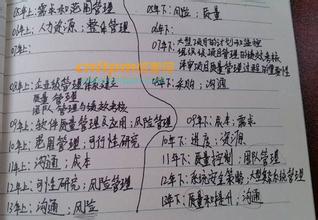 05年上：需求和范围管理
05年下：风险；质量
06年上：人力资源；整体管理
06年下：
07年上：
07年下：大型项目的计划和监控
组织级项目管理的绩效考核
评审项目质量管理过程的重要性
08年上：企业级管理体系建立
质量管理
团队管理与绩效考核
08年下：采购；沟通
09年上：软件质量管理及应用；风险管理
09年下：成本；需求
10年上：范围管理；可行性研究
10年下：进度；资源
11年上：沟通；成本
11年下：质量控制；团队管理
12年上：可行性研究；风险管理
12年下：系统安全策略；大型信息系统管理
13年上：沟通；风险
13年下：质量和提升；沟通